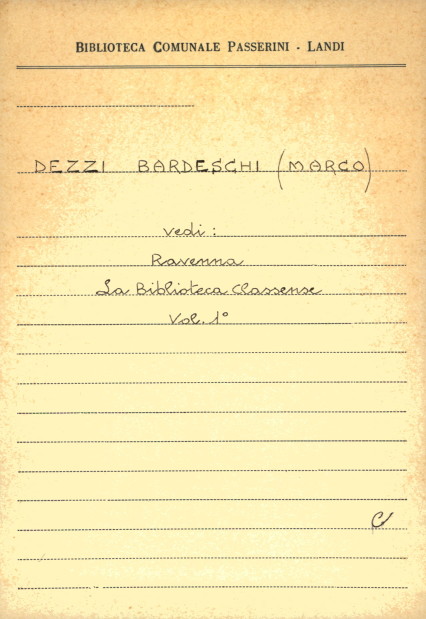 BIBLIOTECA COMUNALE PASSERINI - LANDI
DEZZI BARDESCHI (MARCO)
vedi:
Ravenna
La Biblioteca Classense
Vol. 1°